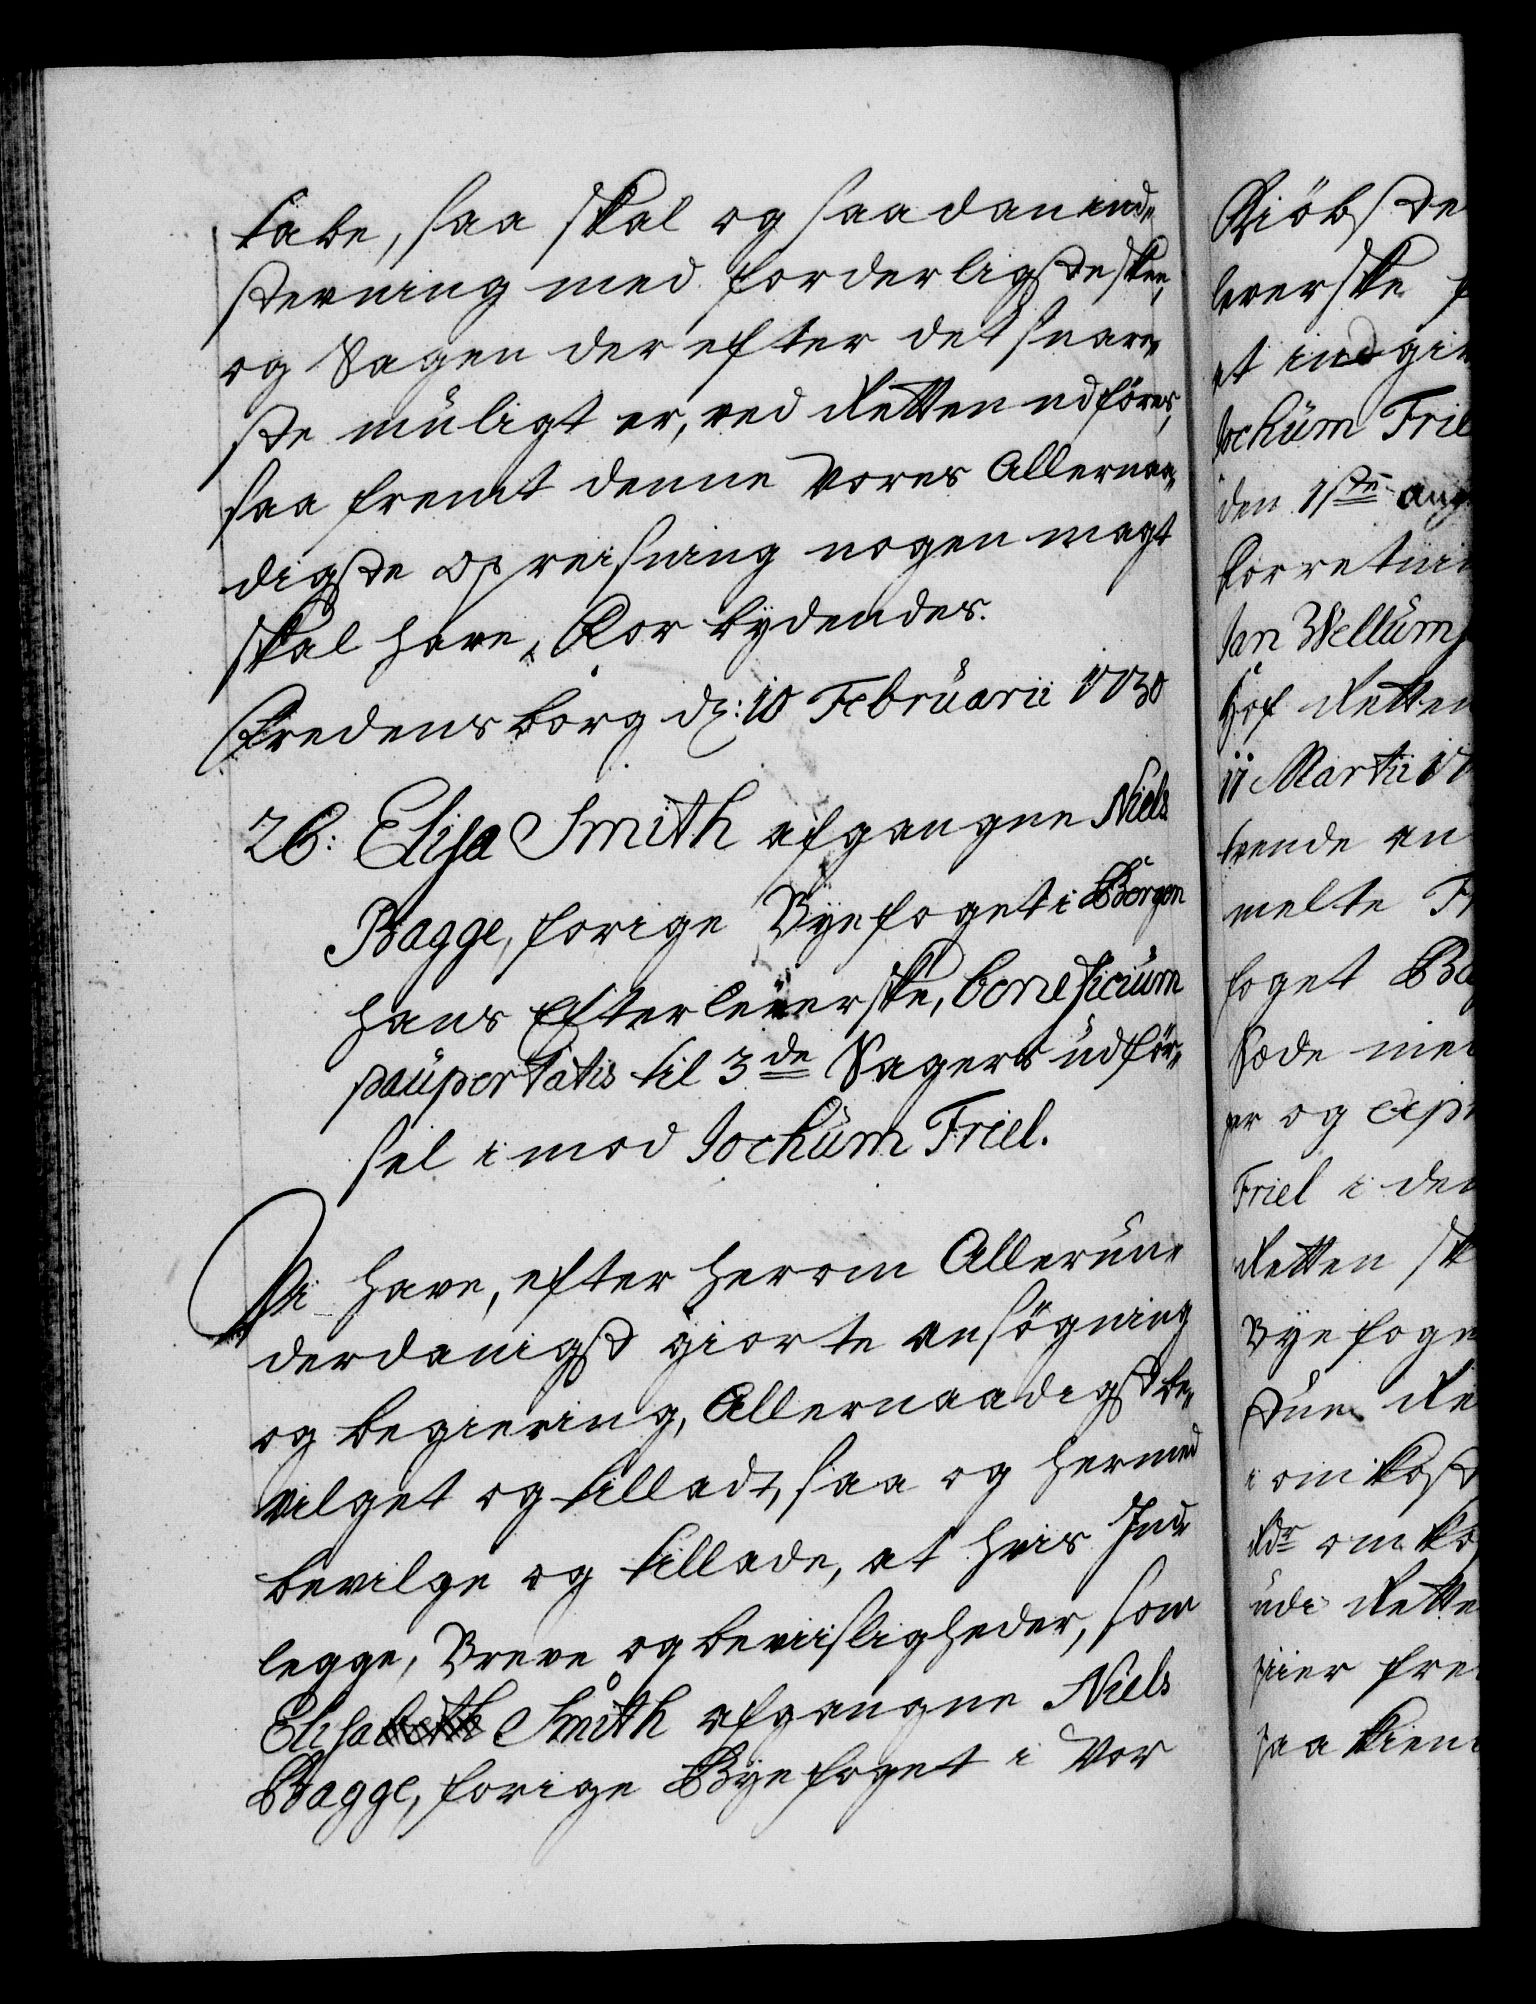 tabe, saa skal og saadan ind„
stevning med forderligste skee,
og Sagen derefter det snare„
ste müligt er, ved Retten udföres,
saa fremt denne Vores Allernaa„
digste opreisning nogen magt
skal have, For bydendes.
Fredensborg d: 10 Februarii 1730
26: Elisa Smith afgangne Niels
Bagge, forige Byefoget i Bergen
hans Efterleverske, beneficium
paupertatis til 3de Sagers udför„
sel imod Jochum Friel.
Vi have, efter herom Allerun„
derdanigst giorte ansögning
og begiering, Allernaadigst be„
vilget og tilladt, saa og hermed
bevilge og tillade, at hvis Ind„
legge, Breve og beviisligheder, som
Elisa Smith afgangne Niels
Bagge, forige Byefoget i Vor
Kiöbste
leverske
et indgiv
Jochum Frie
den 1ste aug
Forretni
Jan Wellum
Hof Retten
11 Martii 17
tvende an
melte Fr
foget Ba
Sæde med
er og
Friel i den
Retten sk
Byefoge
Re
i omkost
Rdr omko
udi Rette
fre
saa kien